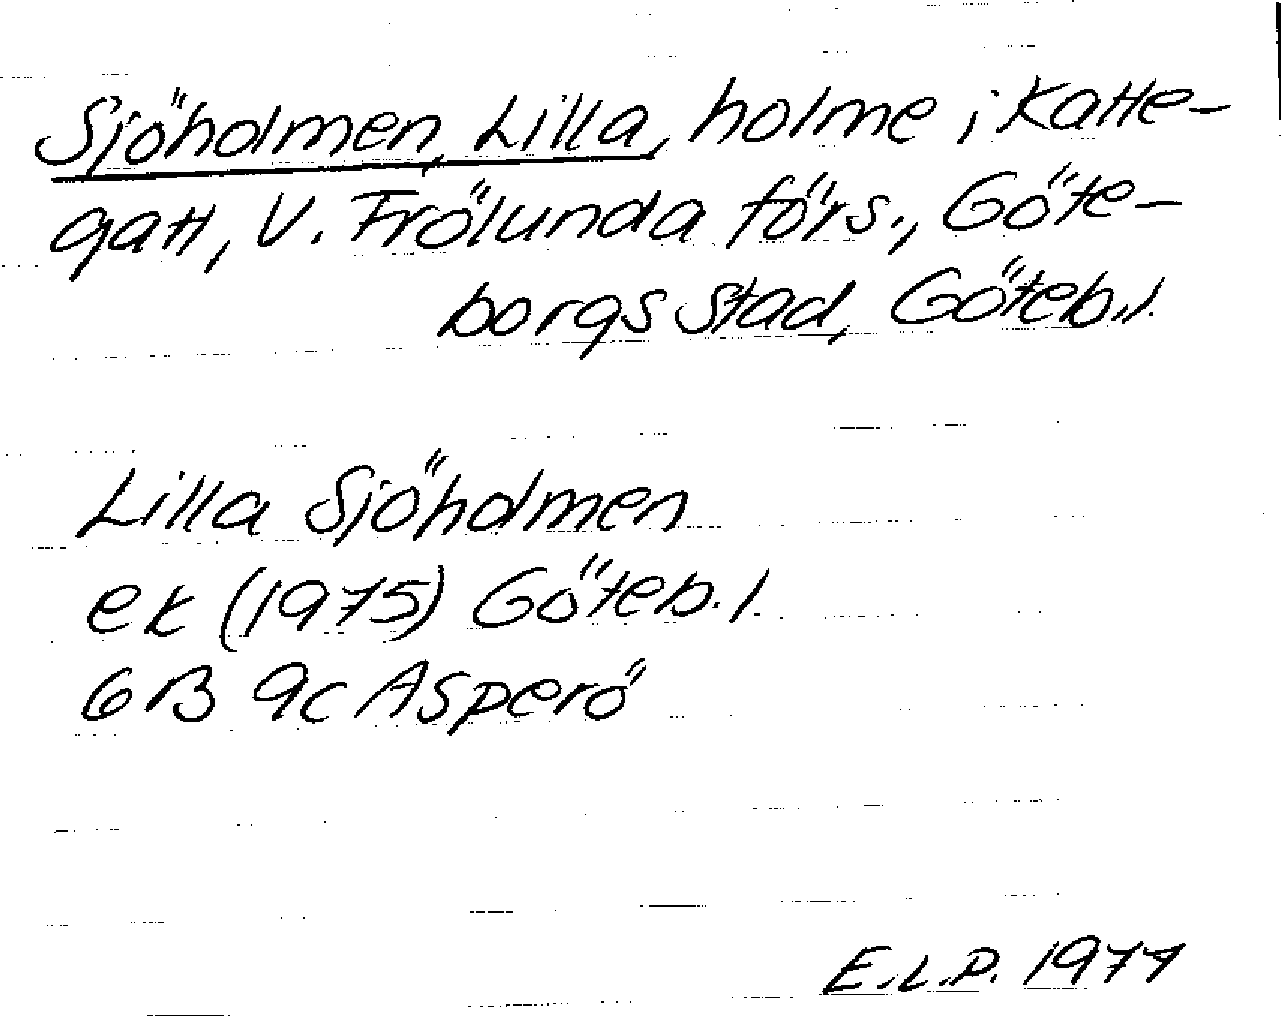 Sjöholmen, Lilla, holme i Katte-
gatt, V. Frölunda förs., Göte-
borgs stad, Göteb.l.
Lilla Sjöholmen
ek (1975) Göteb. l.
6B 9c Asperö
E.L.P. 1977